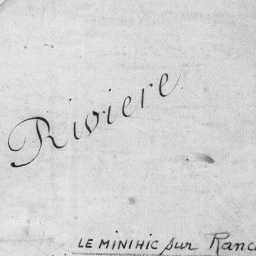 Riviere
LE MINIHIC sur Ranc